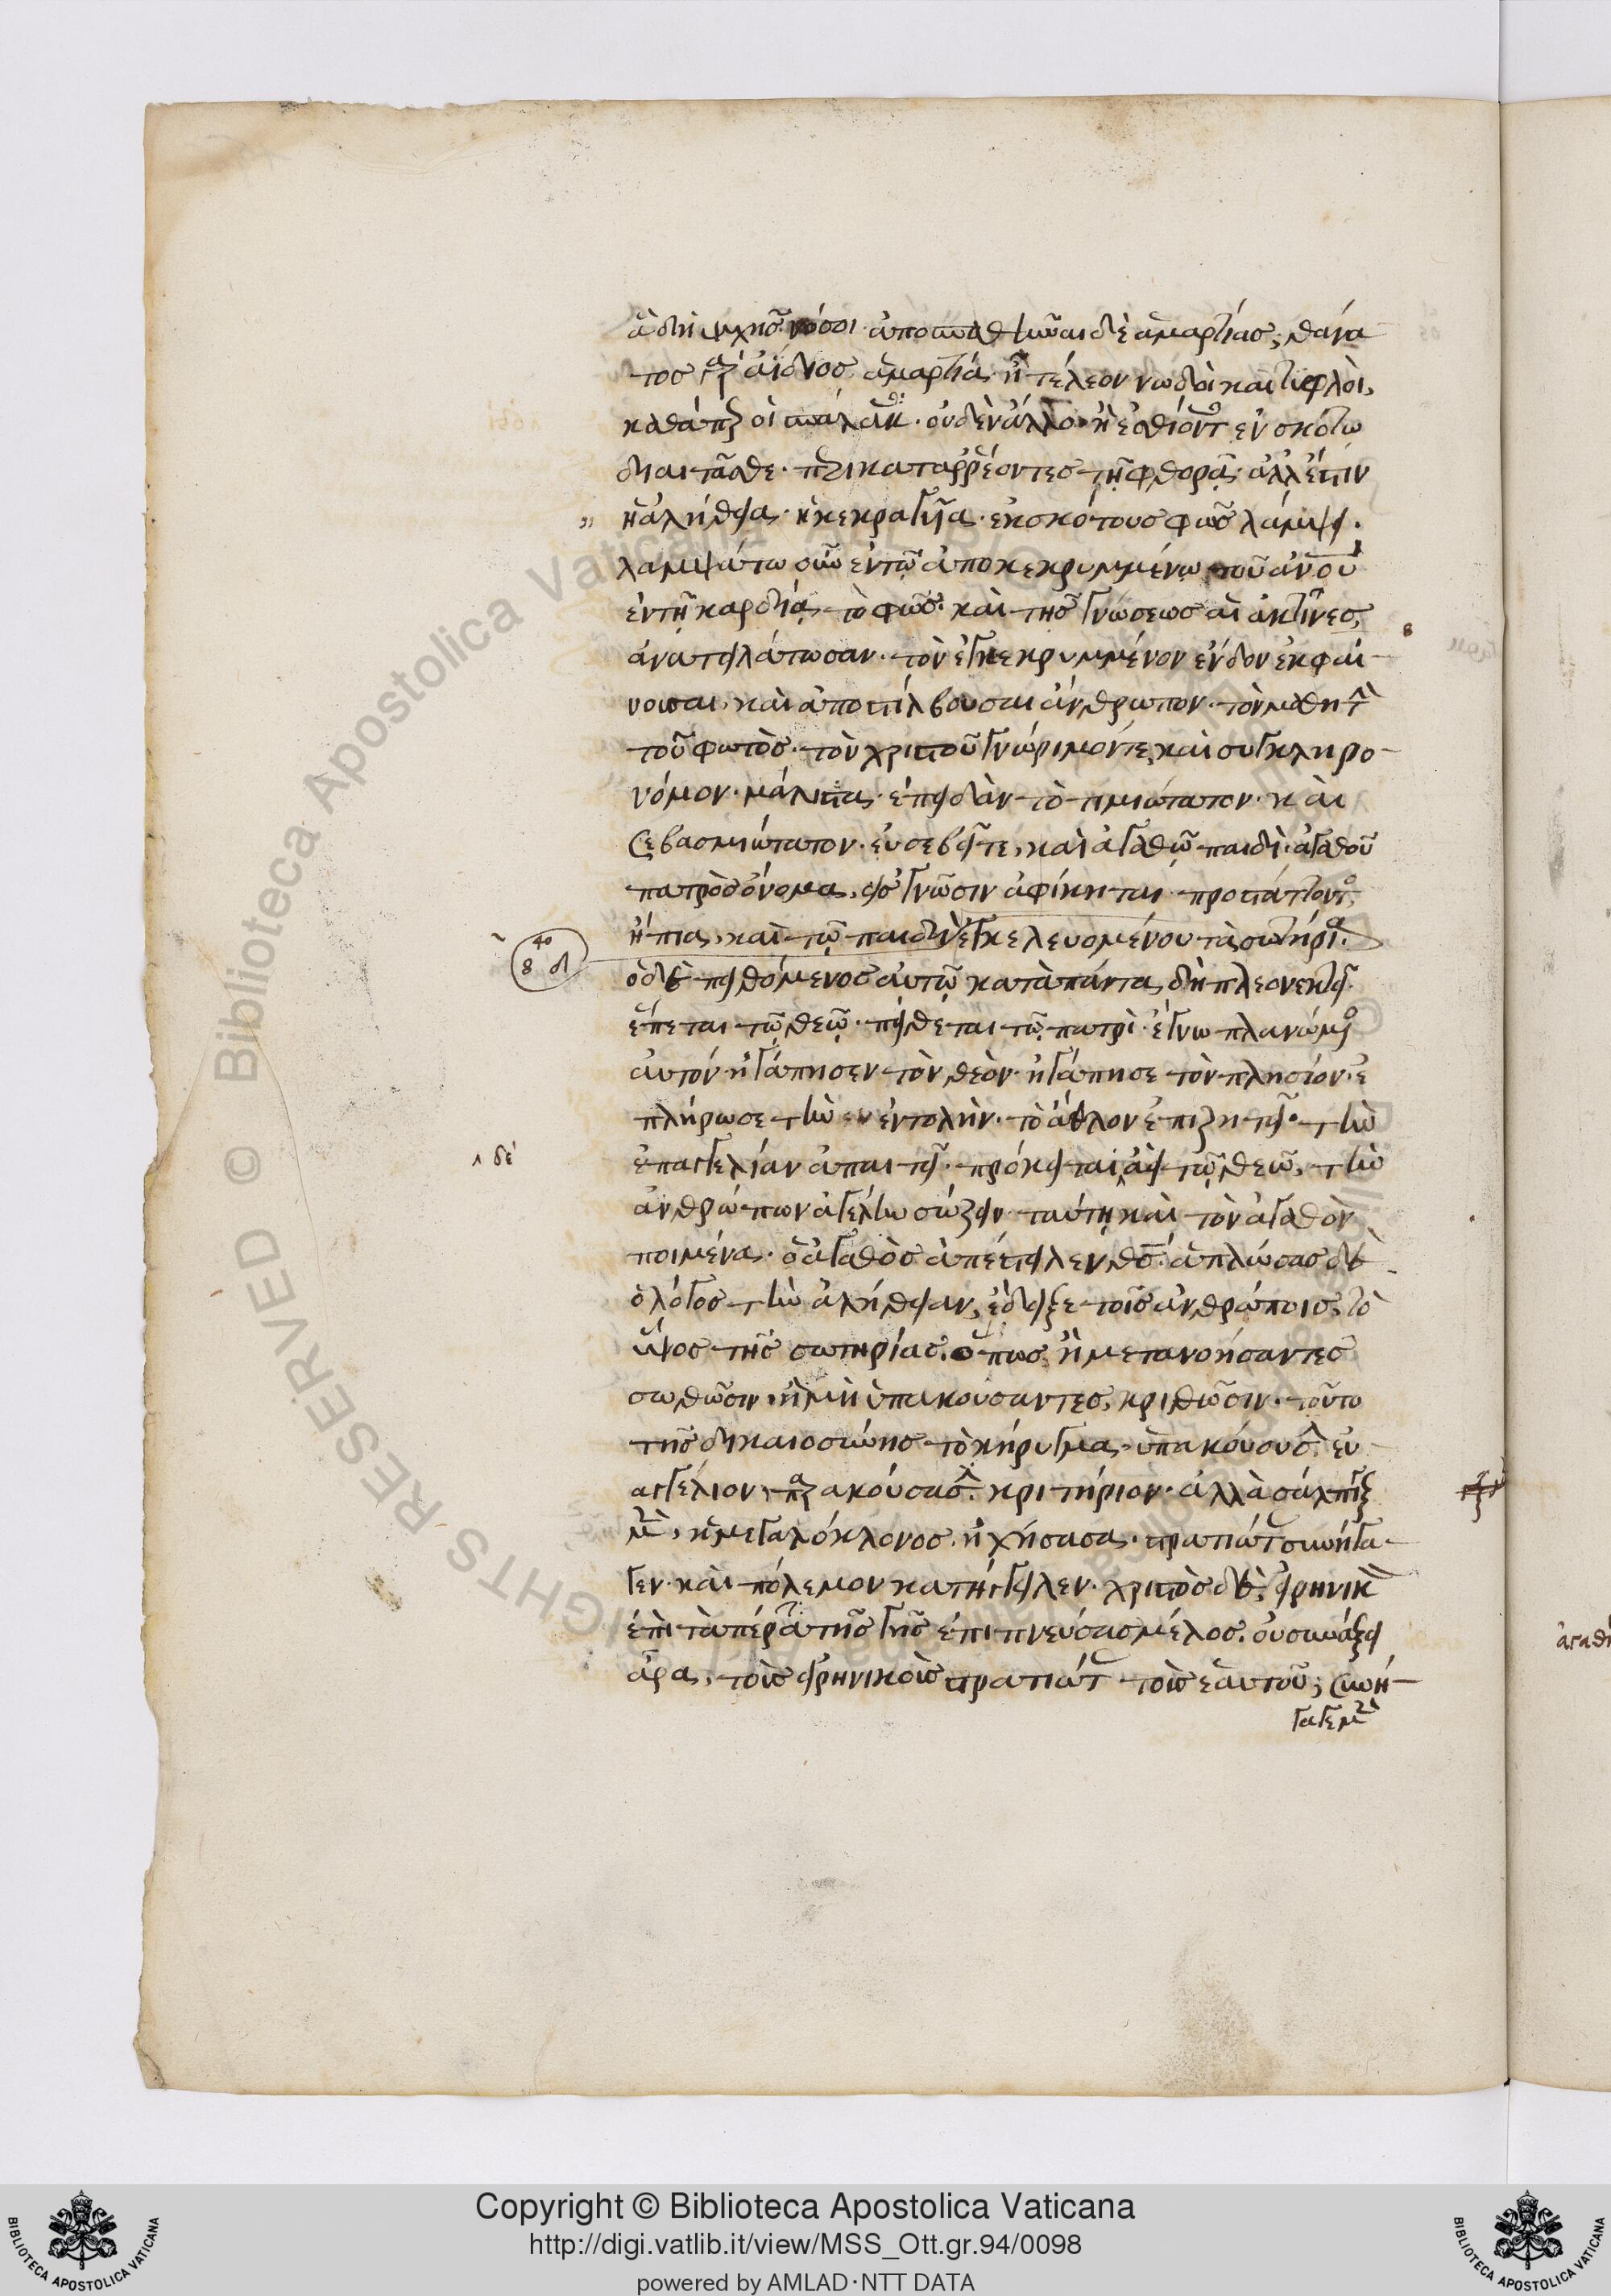 ἃ δὴ ψυχῆς νόσοι ἀποσπασθῆναι δὲ ἁμαρτίας, θάνα
τος γὰρ ἀΐδιος ἁμαρτία. ἦ τέλεον νωδοὶ καὶ τυφλοὶ,
καθάπερ οἱ σπάλακες. οὐδὲν ἄλλο ἢ ἐσθίοντες ἐν σκότῳ
διαιτᾶσθε. περικαταρρέοντες τῇ φθορᾷ. ἀλλ' ἔστιν
ἡ ἀλήθεια ἡ κεκραγυῖα. ἐκ σκότους φῶς λάμψει.
λαμψάτω οὖν ἐν τῷ ἀποκεκρυμμένῳ τοῦ ἀνου
ἐν τῇ καρδίᾳ τὸ φῶς. καὶ τῆς γνώσεως αἱ ἀκτῖνες,
ἀνατειλάτωσαν. τὸν ἐγκεκρυμμένον ἔνδον ἐκφαί-
νουσαι, καὶ ἀποστίλβουσαι ἄνθρωπον. τὸν μαθητὴν
τοῦ φωτὸς. τὸν χριστοῦ γνώριμόν τε καὶ συγκληρο-
νόμον. μάλιστα. ἐπειδὰν τὸ τιμιώτατον. καὶ
σεβασμιώτατον. εὐσεβεῖ τε, καὶ ἀγαθῷ παιδὶ. ἀγαθοῦ
πατρὸς ὄνομα, εἰς γνῶσιν ἀφίκηται προστάττοντος
ἤπια, καὶ τῷ παιδὶ ἐγκελευομένου τὰ σωτήρια.
ὁ δὲ πειθόμενος αὐτῷ κατὰ πάντα δὴ πλεονεκτεῖ.
ἕπεται τῷ θεῷ. πείθεται τῷ πατρὶ. ἔγνω πλανώμενος
αὐτόν. ἠγάπησεν τὸν θεὸν. ἠγάπησε τὸν πλησίον. ἐ
πλήρωσε τὴν ἐντολὴν. τὸ ἆθλον ἐπιζητεῖ. τὴν
ἐπαγγελίαν ἀπαιτεῖ. πρόκειται ἀεὶ τῷ θεῷ, τὴν
ʌ δὲ
ἀνθρώπων ἀγέλην σώζειν. ταύτῃ καὶ τὸν ἀγαθὸν
ποιμένα. ὁ ἀγαθὸς ἀπέστειλεν θς. ἁπλώσας δὲ
ὁ λόγος τὴν ἀλήθειαν, ἔδειξε τοῖς ἀνθρώποις, τὸ
ὕψος τῆς σωτηρίας. ὅπως ἢ μετανοήσαντες
σωθῶσιν, ἢ μὴ ὑπακούσαντες, κριθῶσιν. τοῦτο
τῆς δικαιοσύνης τὸ κήρυγμα. ὑπακούουσιν. εὐ
αγγέλιον, παρακούσασιν. κριτήριον. ἀλλὰ σάλπιγξ
μὲν, ἡ μεγαλόκλονος. ἠχήσασα. στρατιώτας συνήγα-
γεν. καὶ πόλεμον κατήγγειλεν. χριστὸς δὲ, εἰρηνικὸν
ἐπὶ τὰ πέρατα τῆς γῆς ἐπιπνεύσας μέλος. οὐ συνάξει
ἄρα, τοὺς εἰρηνικοὺς στρατιώτας τοὺς ἑαυτοῦ; συνή-
γαγε μὲν
Copyright © Biblioteca Apostolica Vaticana
http://digi.vatlib.it/view/MSS_Ott.gr.94/0098
powered by AMLAD·NTT DATA
BIBLIOTECA APOSTOLICA VATICANA
BIBLIOTECA APOSTOLICA VATICANA